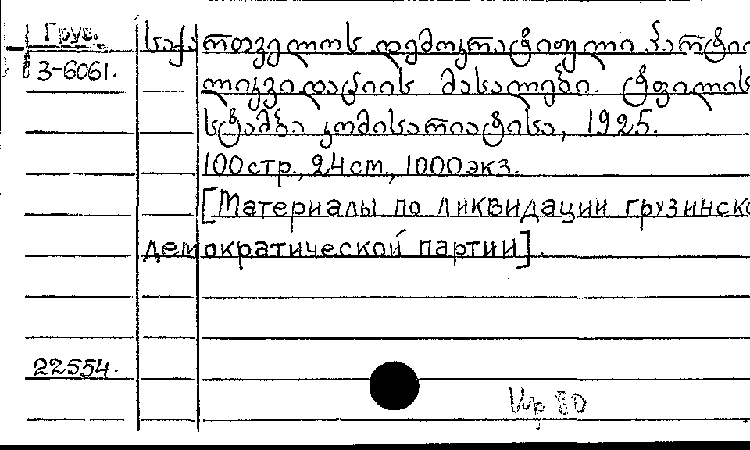 Груз.
3-6061.
საქართველოს დემოკრატიული პარტიი
ლიკვიდაციის მასალები. ტფილის
სტამბა კომისარიატისა, 1925.
100 стр., 24 см., 1000 экз.
[Материалы по ликвидации грузинско
демократической партии].
22554.
80